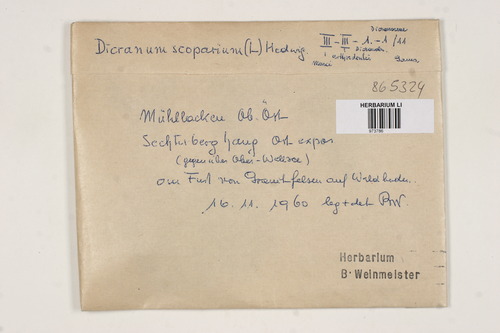 Dicranum scoparium (L.) Hedwig.
Dicranaceae
III - III - 1. - 1 / 11
Musci orthodontii Dicranales Gams
865324
HERBARIUM LI
Mühllacken Ob. Öst
hang Ost expos
(gegenüber Ober-Wallsee)
am Fuß von Granitfelsen auf Waldboden.
16. 11. 1960 leg + det BW.
Herbarium
B. Weinmeister